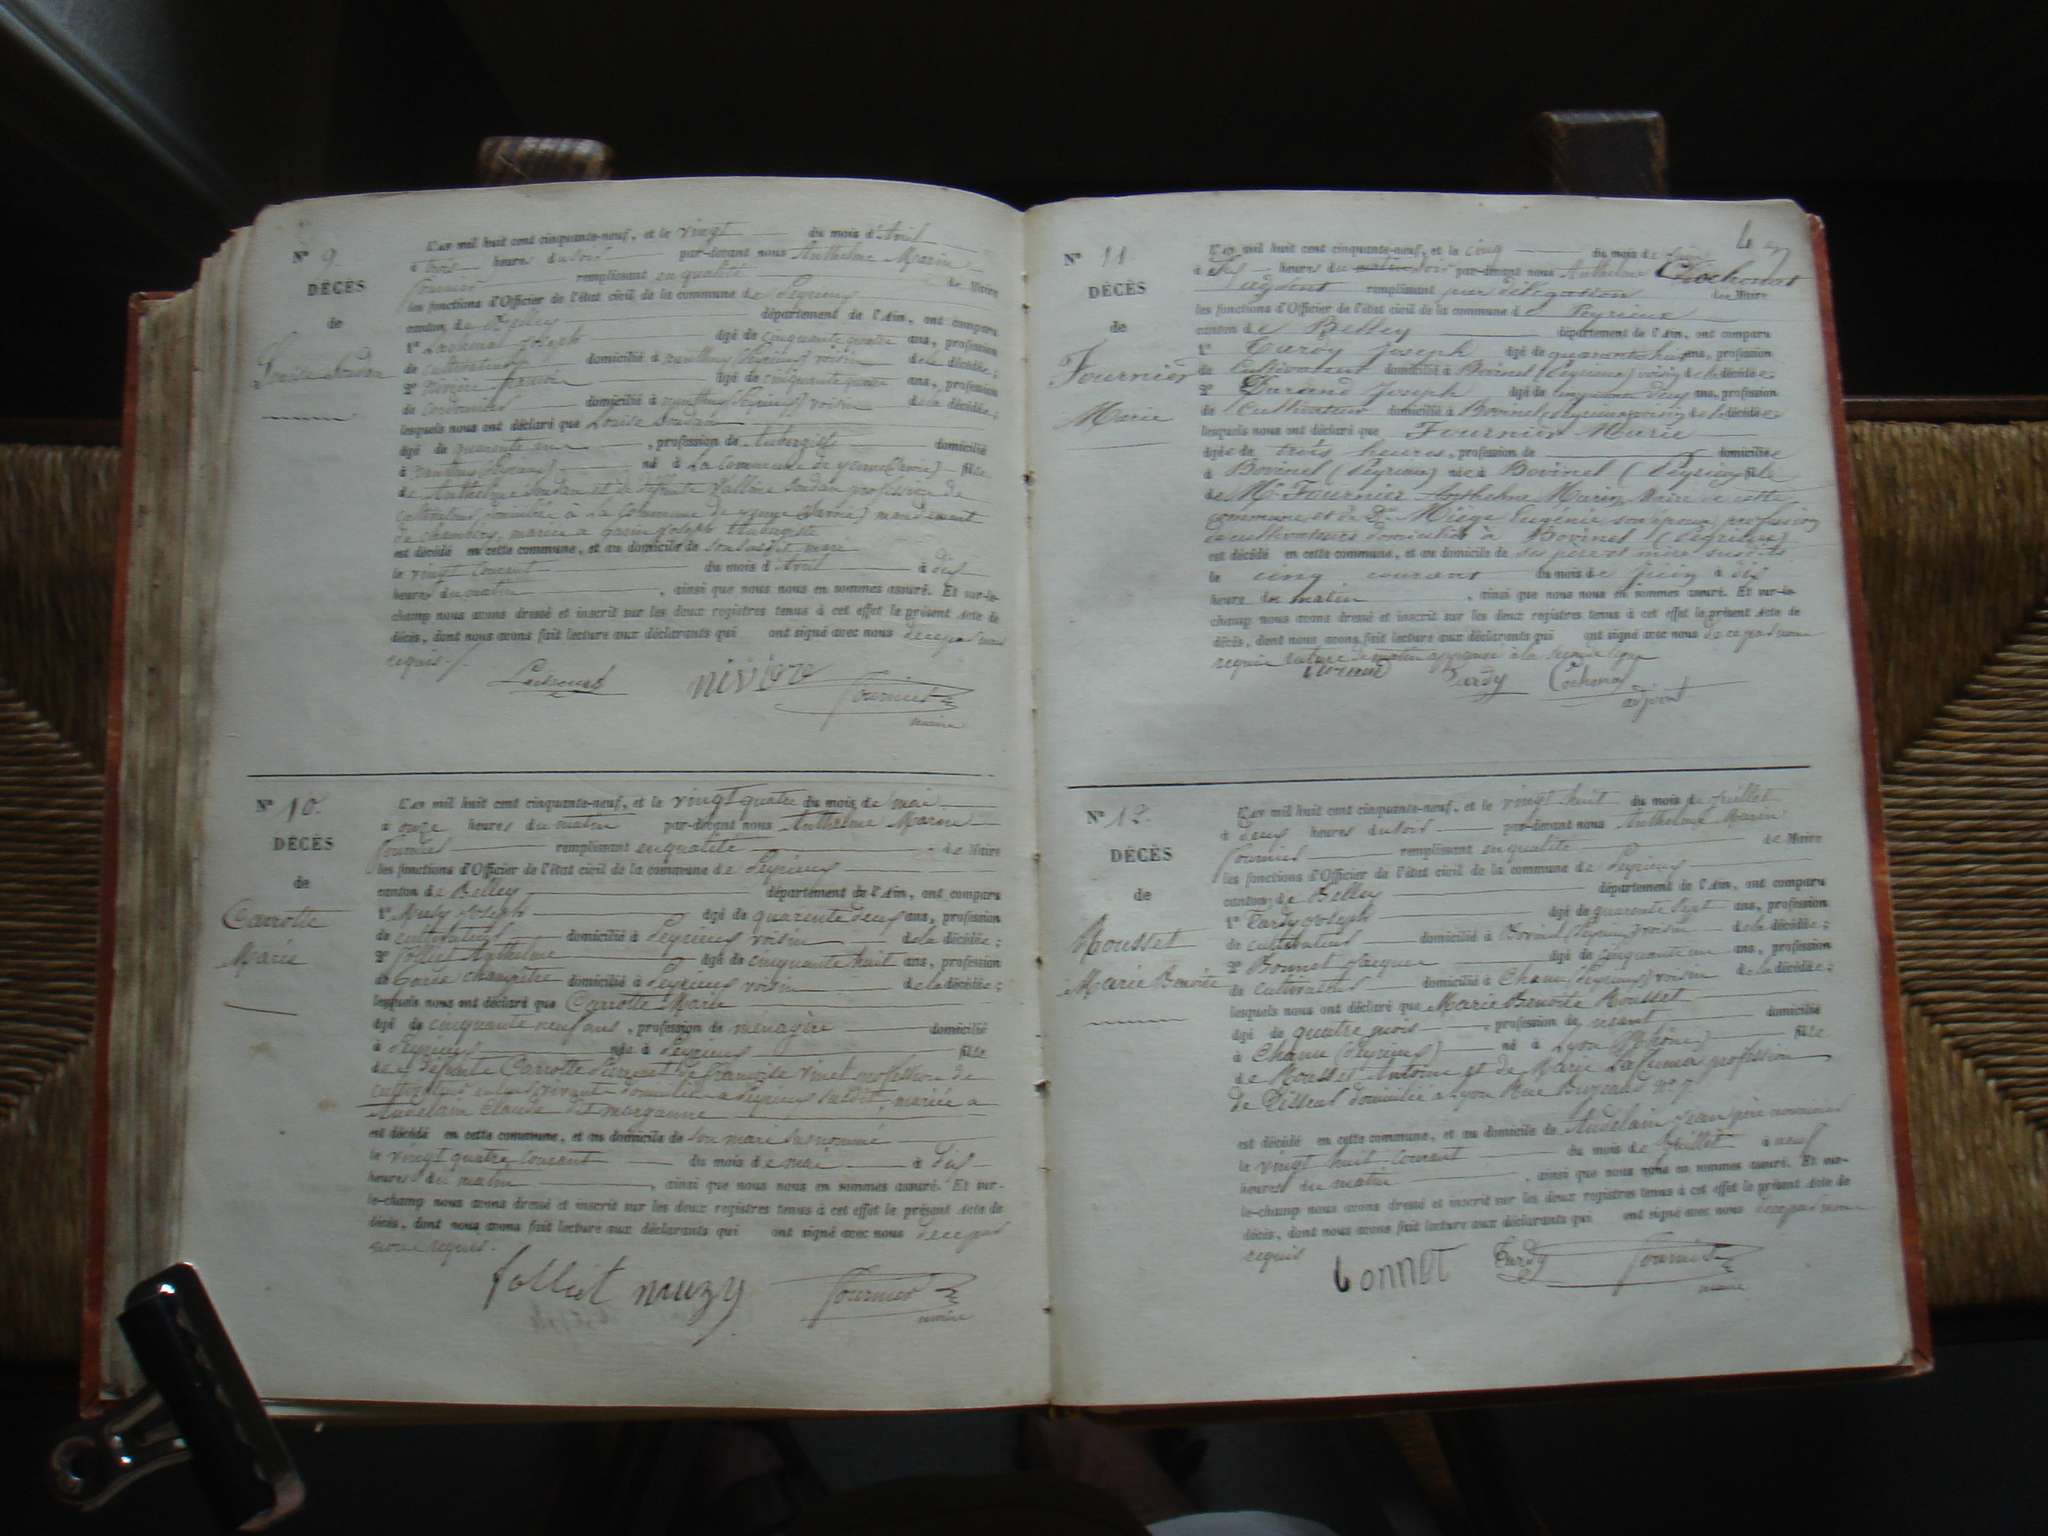 N° 9
DÉCÈS
de
Louise Soudan
L'an mil huit cent cinquante-neuf, et le vingt du mois d'Avril
à trois heures du soir par-devant nous Anthelme Marin
Fournier remplissant en qualité de Maire
les fonctions d'Officier de l'état civil de la commune de Peyrieux
canton de Belley département de l'Ain, ont comparu
1° Joseph âgé de cinquante quatre ans, profession
de cultivateur domicilié à (Peyrieux) voisin de la décédée;
2° âgé de cinquante ans, profession
de Cordonnier domicilié à (Peyrieux) voisin de la décédée;
lesquels nous ont déclaré que Louise Soudan
âgé de quarante ans, profession de Aubergiste domicilié
à (Peyrieux) né à La Commune de yenne (Savoie) fille
de Anthelme Soudan et de défunte Soudan profession de
cultivateurs domiciliés à La Commune de yenne (Savoie) mandement
de chambéry, mariée à Joseph Aubergiste
est décédé en cette commune, et au domicile de son susdit mari
le vingt Courant du mois d'Avril à dix
heures du matin, ainsi que nous nous en sommes assuré. Et sur-le-
champ nous avons dressé et inscrit sur les deux registres tenus à cet effet le présent Acte de
décès, dont nous avons fait lecture aux déclarants qui ont signé avec nous de ce par nous
requis ./.
nivière Fournier
maire
N° 10.
DÉCÈS
de
Carrotte
Marie
L'an mil huit cent cinquante-neuf, et le vingt quatre du mois de mai
à onze heures du matin par-devant nous Anthelme Marin
Fournier remplissant en qualité de Maire
les fonctions d'Officier de l'état civil de la commune de Peyrieux
canton de Belley département de l'Ain, ont comparu
1° Muzy Joseph âgé de quarante deux ans, profession
de cultivateur domicilié à Peyrieux voisin de la décédée;
2° Folliet Anthelme âgé de cinquante huit ans, profession
de Garde champêtre domicilié à Peyrieux voisin de la décédée;
lesquels nous ont déclaré que Carrotte Marie
âgé de cinquante neuf ans, profession de ménagère domicilié
à Peyrieux née à Peyrieux fille
de défunts Carrotte et de Françoise vinet profession de
cultivateurs en leur vivant domiciliés à Peyrieux susdit, mariée à
Andelain Claude dit morganne
est décédé en cette commune, et au domicile de son mari susnommé
le vingt quatre courant du mois de mai à dix
heures du matin, ainsi que nous nous en sommes assuré. Et sur-
le-champ nous avons dressé et inscrit sur les deux registres tenus à cet effet le présent Acte de
décès, dont nous avons fait lecture aux déclarants qui ont signé avec nous de ce par
nous requis.
folliet muzy Fournier
maire
N° 11
DÉCÈS
de
Fournier
Marie
L'an mil huit cent cinquante-neuf, et le cinq du mois de Juin
à six heures du matin soir par-devant nous Anthelme Cochonat
Adjoint remplissant par délégation de Maire
les fonctions d'Officier de l'état civil de la commune de Peyrieux
canton de Belley département de l'Ain, ont comparu
1° Tardy Joseph âgé de quarante huit ans, profession
de Cultivateur domicilié à Bovinel (Peyrieux) voisin de la décédée
2° Durand Joseph âgé de cinquante deux ans, profession
de Cultivateur domicilié à Bovinel (Peyrieux) voisin de la décédée
lesquels nous ont déclaré que Fournier Marie
âgée de trois heures, profession de domiciliée
à Bovinel (Peyrieux) née à Bovinel (Peyrieux) fille
de Mr Fournier Anthelme Marin Maire de cette
commune et de Dme Miége Eugénie son épouse profession
de cultivateurs domiciliés à Bovinel (Peyrieux)
est décédé en cette commune, et au domicile de ses père et mère susdits
le cinq courant du mois de Juin à dix
heure du matin, ainsi que nous nous en sommes assuré. Et sur-le-
champ nous avons dressé et inscrit sur les deux registres tenus à cet effet le présent Acte de
décès, dont nous avons fait lecture aux déclarants qui ont signé avec nous de ce par nous
requis rature de matin approuvé à la seconde ligne
Durand Tardy Cochonat
adjoint
N° 12.
DÉCÈS
de
Rousset
Marie Benoite
L'an mil huit cent cinquante-neuf, et le vingt huit du mois de Juillet
à deux heures du soir par-devant nous Anthelme Marin
Fournier remplissant en qualité de Maire
les fonctions d'Officier de l'état civil de la commune de Peyrieux
canton de Belley département de l'Ain, ont comparu
1° Tardy Joseph âgé de quarante sept ans, profession
de cultivateur domicilié à Bovinel (Peyrieux) voisin de la décédée;
2° Bonnet Jacques âgé de cinquante un ans, profession
de cultivateur domicilié à (Peyrieux) voisin de la décédée;
lesquels nous ont déclaré que Marie Benoite Rousset
âgé de quatre mois, profession de néant domicilié
à (Peyrieux) né à Lyon (Rhône) fille
de Rousset Antoine et de Marie profession
de Tisseur domicilié à Lyon Rue N° 7
est décédé en cette commune, et au domicile de Andelain Jean père nourricier
le vingt huit courant du mois de Juillet à neuf
heures du matin, ainsi que nous nous en sommes assuré. Et sur-
le-champ nous avons dressé et inscrit sur les deux registres tenus à cet effet le présent Acte de
décès, dont nous avons fait lecture aux déclarants qui ont signé avec nous de ce par nous
requis
bonnet Tardy Fournier
maire